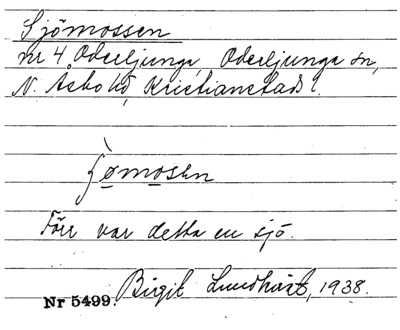 Sjömossen
nr 4 Oderljunga, Oderljunga sn,
N. Åsbo hd, Kristianstads l.
Förr var detta en sjö.
Nr 5499. Birgit Lundkvist, 1938.